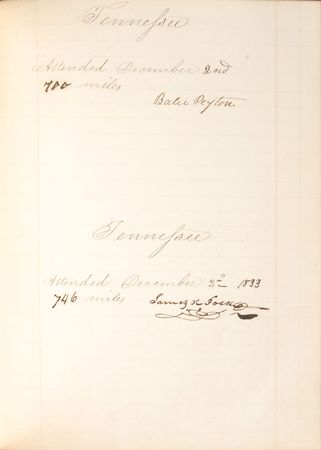 Tennessee
Attended December 2nd
700 miles
Balie Peyton
Tennessee
Attended December 2d 1833
746 miles James K Polk